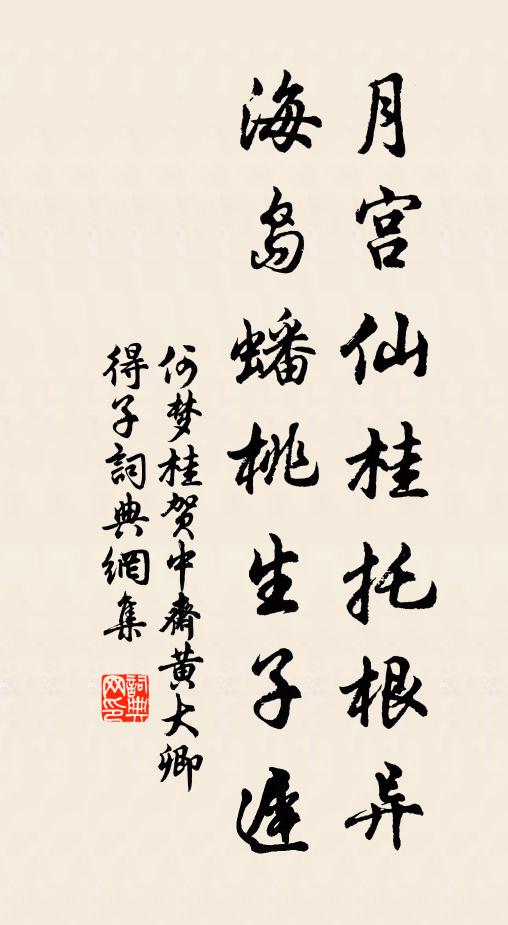 月宫仙桂托根异
海岛蟠桃生子遲
何梦桂贺中齋黄大卿
得子詞典網集
詞典网印